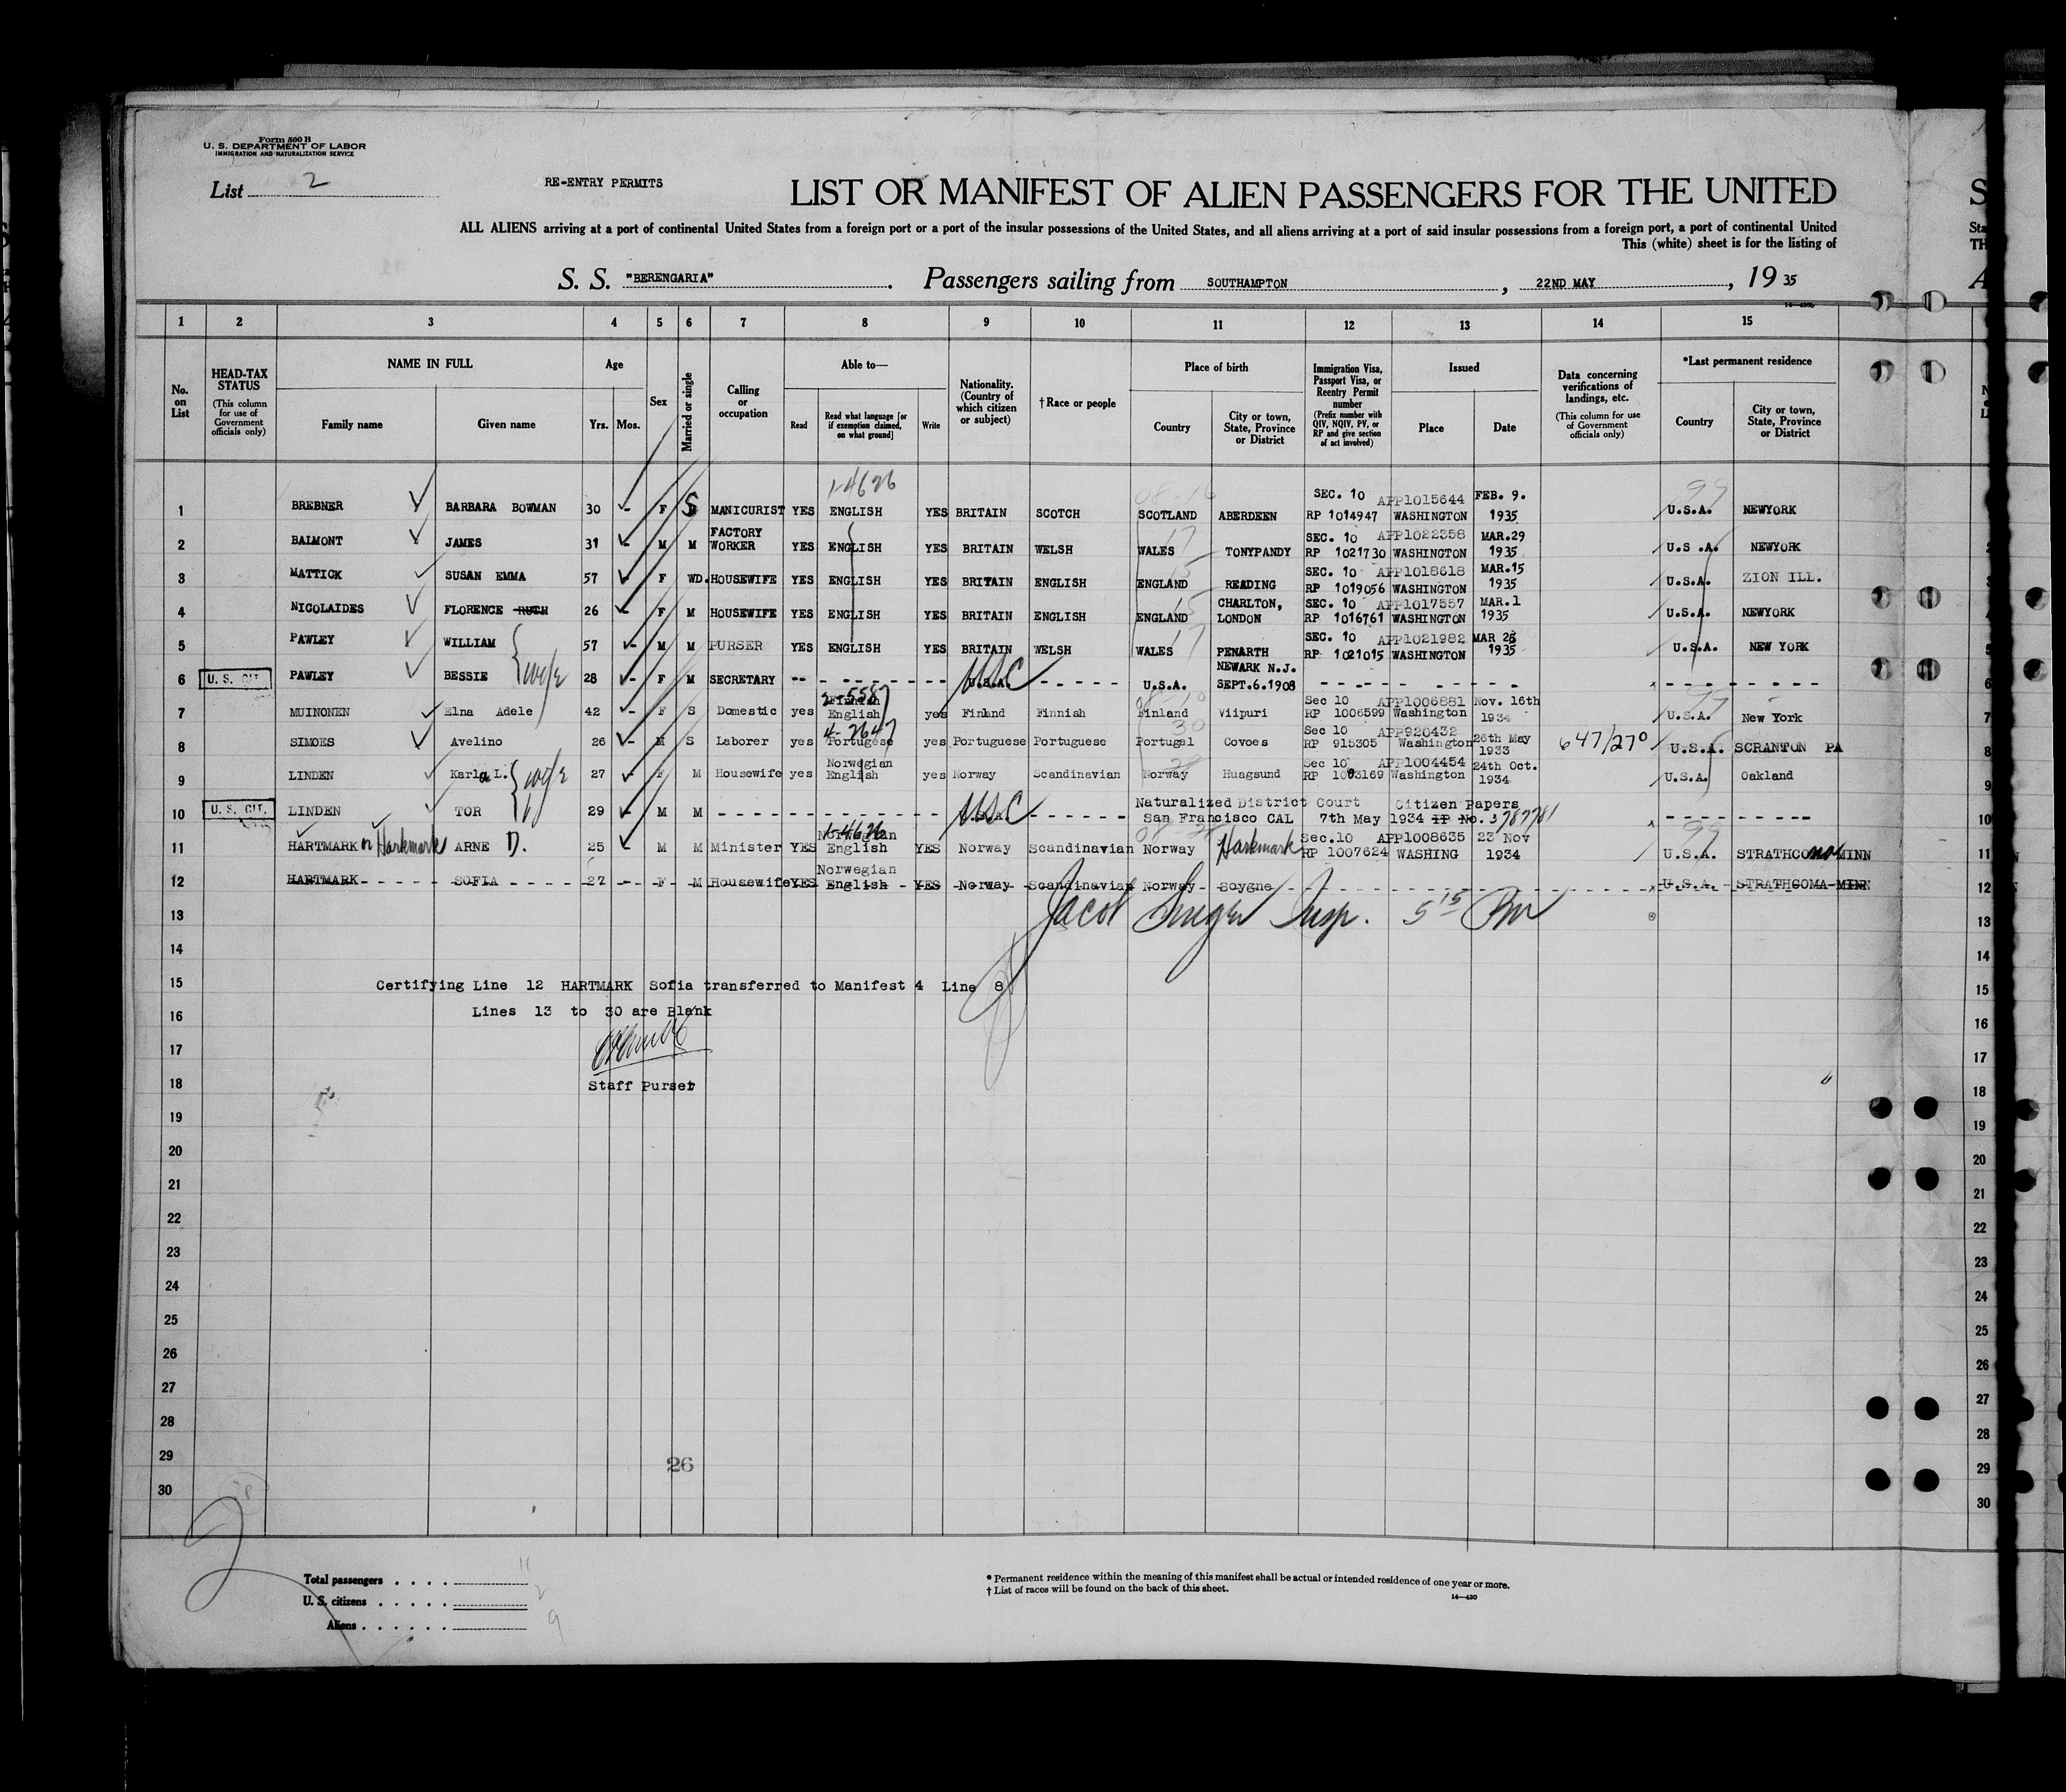 Form 500 B
U. S. DEPARTMENT OF LABOR
IMMIGRATION AND NATURALIZATION SERVICE
List 2
RE-ENTRY PERMITS
LIST OR MANIFEST OF ALIEN PASSENGERS FOR THE UNITED
ALL ALIENS arriving at a port of continental United States from a foreign port or a port of the insular possessions of the United States, and all aliens arriving at a port of said insular possessions from a foreign port, a port of continental United
This (white) sheet is for the listing of
S. S. "BERENGARIA". Passengers sailing from SOUTHAMPTON, 22ND MAY, 19 35
1 2 3 4 5 6 7 8 9 10 11 12 13 14 15
No. on List
HEAD-TAX STATUS (This column for use of Government officials only)
NAME IN FULL
Family name Given name
Age
Yrs. Mos.
Sex
Married or single
Calling or occupation
Able to—
Read Read what language [or if exemption claimed, on what ground] Write
Nationality. (Country of which citizen or subject)
†Race or people
Place of birth
Country City or town, State, Province or District
Immigration Visa, Passport Visa, or Reentry Permit number (Prefix number with QIV, NQIV, PV, or RP and give section of act involved)
Issued
Place Date
Data concerning verifications of landings, etc. (This column for use of Government officials only)
*Last permanent residence
Country City or town, State, Province or District
1-4626
1 BREBNER BARBARA BOWMAN 30 - F S MANICURIST YES ENGLISH YES BRITAIN SCOTCH SCOTLAND ABERDEEN SEC. 10 APP1015644 RP 1014947 WASHINGTON FEB. 9. 1935 U.S.A. NEWYORK
2 BALMONT JAMES 31 - M M FACTORY WORKER YES ENGLISH YES BRITAIN WELSH WALES TONYPANDY SEC. 10 APP1022358 RP 1021730 WASHINGTON MAR.29 1935 U.S.A. NEWYORK
3 MATTICK SUSAN EMMA 57 - F WD. HOUSEWIFE YES ENGLISH YES BRITAIN ENGLISH ENGLAND READING SEC. 10 APP1018618 RP 1019056 WASHINGTON MAR.15 1935 U.S.A. ZION ILL.
4 NICOLAIDES FLORENCE RUTH 26 F M HOUSEWIFE YES ENGLISH YES BRITAIN ENGLISH ENGLAND CHARLTON, LONDON SEC. 10 APP1017557 RP 1016761 WASHINGTON MAR.1 1935 U.S.A. NEWYORK
5 PAWLEY WILLIAM 57 - M M PURSER YES ENGLISH YES BRITAIN WELSH WALES PENARTH SEC. 10 APP1021982 RP 1021015 WASHINGTON MAR 28 1935 U.S.A. NEW YORK
6 U. S. CIT. PAWLEY BESSIE wife 28 - F M SECRETARY U.S.A. USC U.S.A. NEWARK N.J. SEPT.6.1908
7 MUINONEN Elna Adele 42 - F S Domestic yes Finnish English 2-5587 yes Finland Finnish Finland Viipuri Sec 10 APP1006881 RP 1006599 Washington Nov. 16th 1934 U.S.A. New York
8 SIMOES Avelino 26 - M S Laborer yes Portugese 4-2647 yes Portuguese Portuguese Portugal Covoes Sec 10 APP920432 RP 915305 Washington 26th May 1933 647/270 U.S.A. SCRANTON PA
9 LINDEN Karla L. wife 27 - F M Housewife yes Norwegian English yes Norway Scandinavian Norway Huagsund Sec 10 APP1004454 RP 1003169 Washington 24th Oct. 1934 U.S.A. Oakland
10 U. S. CIT. LINDEN TOR 29 - M M USC Naturalized District Court San Francisco CAL 7th May 1934 Citizen Papers No. 3787781
11 HARTMARK or Harkmark ARNE D. 25 M M Minister YES Norwegian English 1-4626 YES Norway Scandinavian Norway Harkmark Sec.10 APP1008635 RP 1007624 WASHING 23 Nov 1934 U.S.A. STRATHCONA MINN
12 HARTMARK SOFIA 27 - F M Housewife YES Norwegian English YES Norway Scandinavian Norway Soygne U.S.A. STRATHCOMA-MINN
Jacob Singer Insp. 5 15 Pm
13
14
15 Certifying Line 12 HARTMARK Sofia transferred to Manifest 4 Line 8
16 Lines 13 to 30 are Blank
17
18 Staff Purser
19
20
21
22
23
24
25
26
27
28
29
26
30
Total passengers . . . . 11
U. S. citizens . . . . . 2
Aliens . . . . . . 9
* Permanent residence within the meaning of this manifest shall be actual or intended residence of one year or more.
† List of races will be found on the back of this sheet.
14—430